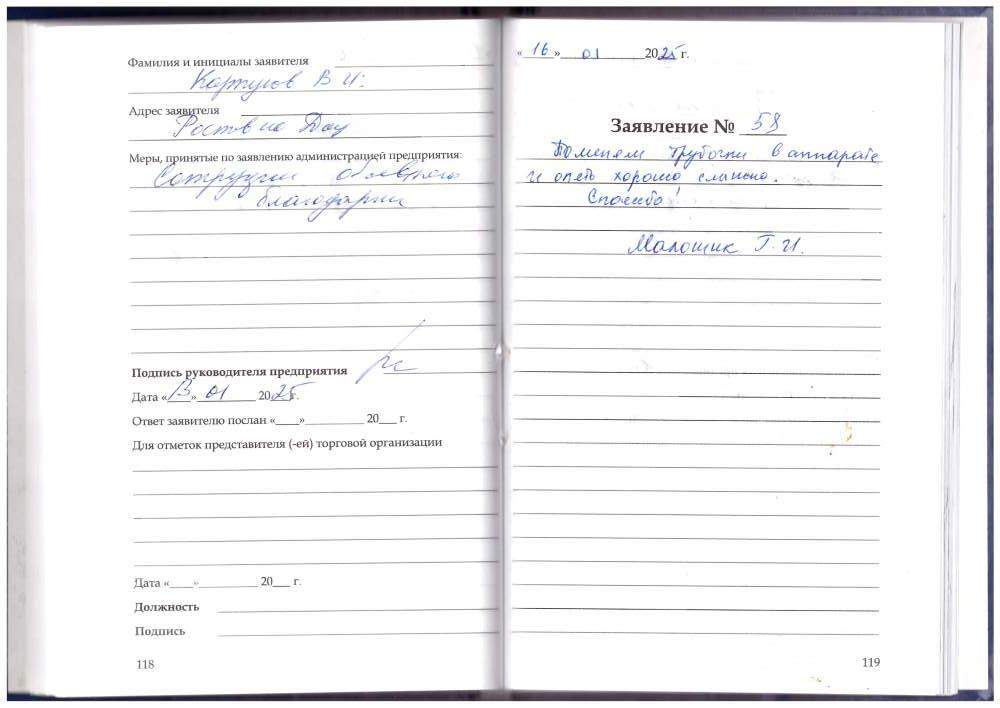 Фамилия и инициалы заявителя
В И.
Адрес заявителя
Ростов на Дону
Меры, принятые по заявлению администрацией предприятия:
объявлено
благодарн
Подпись руководителя предприятия
Дата « » 01 2025 г.
Ответ заявителю послан «___»__________ 20___ г.
Для отметок представителя (-ей) торговой организации
Дата «____»__________ 20___ г.
Должность
Подпись
118
« 16 » 01 2025 г.
Заявление № 58
Поменям трубочки в аппарате
и опять хорошо слышно.
Спасибо!
Малошик Г. И.
119